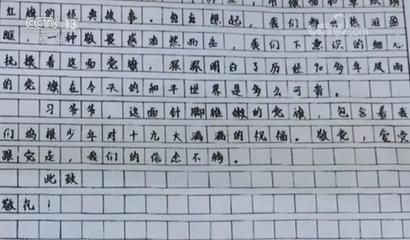 CCTV 13
红旗的经典故事。每每想起，我们都热泪盈
眶，一种敬畏感油然而生，我们下意识的细心
抚摸着这面党旗，深深明白了历经90多年风雨
的党旗在今天的和平世界是多么可贵。
习爷爷，这面针脚稚嫩的党旗，包含着我
们坞根少年对十九大满满的祝福。敬党，爱党
跟党走，我们的信念不。
此致
敬礼！